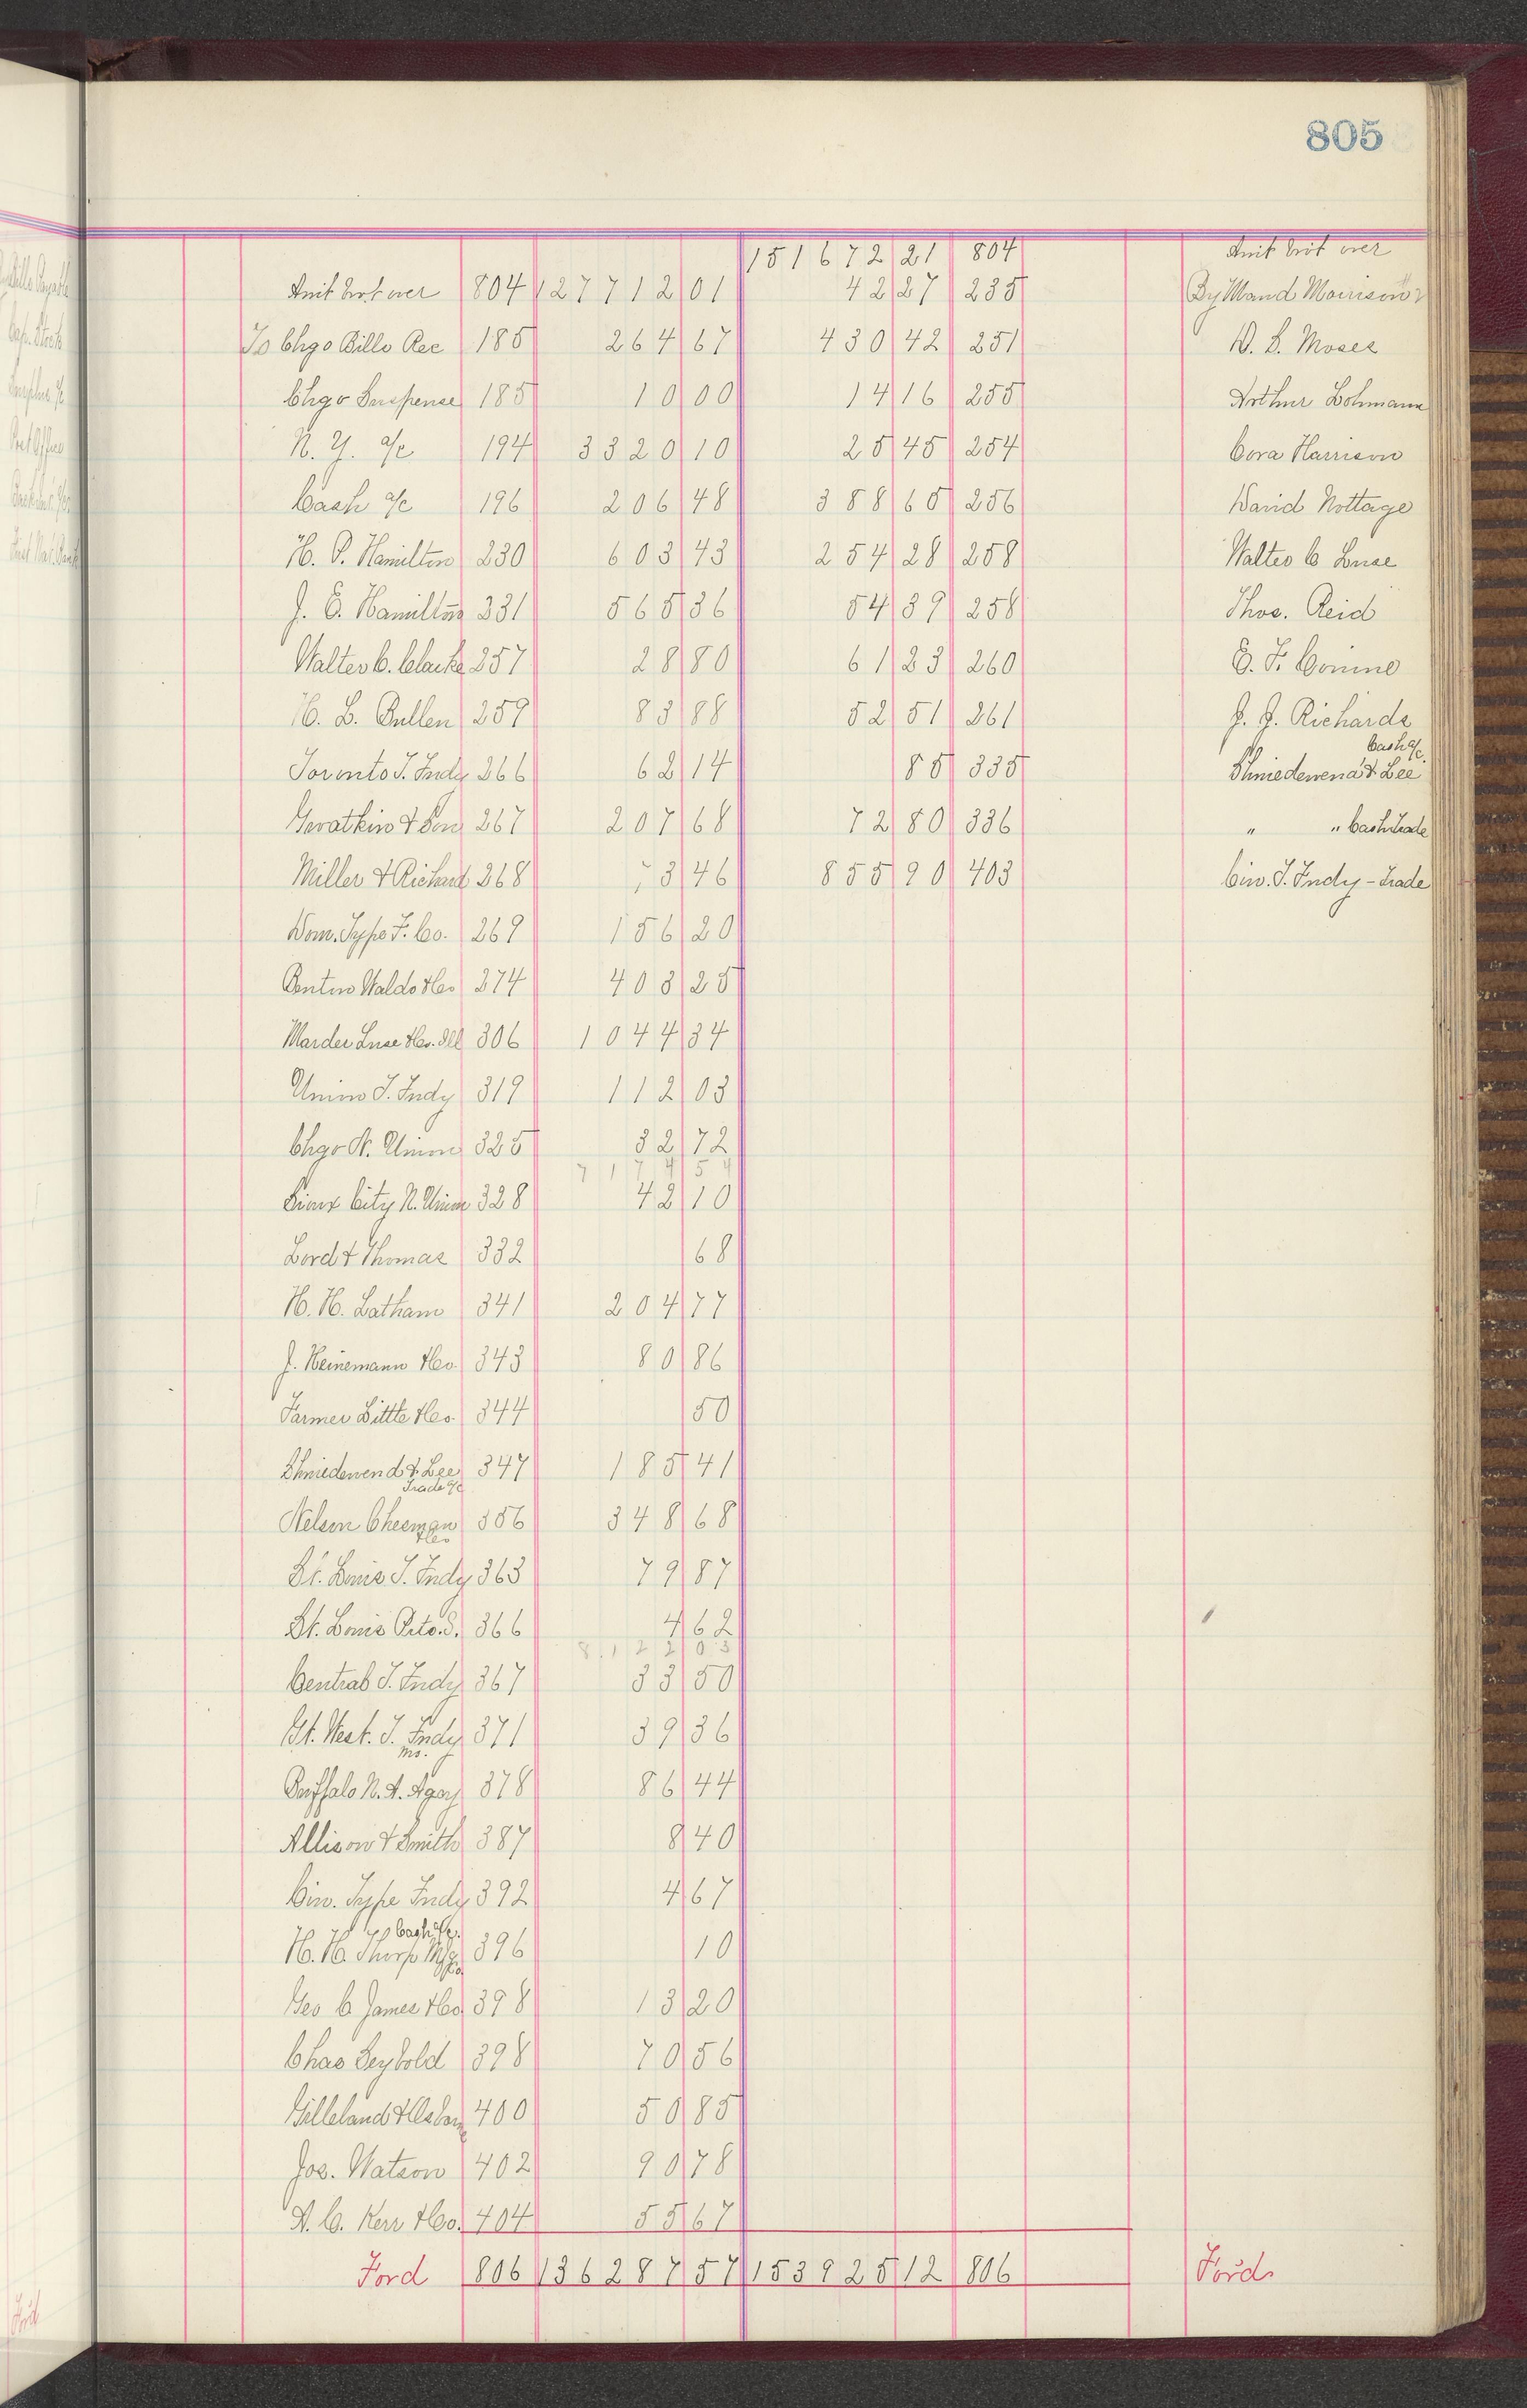 805
151672 21 804 Amt brot over
Amt brot over 804 127712 01 42 27 235 By Maud Morrison
To Chgo Bills Rec 185 264 67 430 42 251 W. L. Moses
Chgo Suspense 185 10 00 14 16 255 Arthur Lohmann
N. Y. a/c 194 3320 10 25 45 254 Cora Harrison
Cash a/c 196 206 48 388 65 256 David Nottage
H. P. Hamilton 230 603 43 254 28 258 Walter C Luse
J. E. Hamilton 231 565 36 54 39 258 Thos. Reid
Walter C. Clarke 257 28 80 61 23 260 E. F. Corine
H. L. Bullen 259 83 88 52 51 261 J. J. Richards
Toronto T. Indy 266 62 14 85 335 Shniedewend & Lee Cash a/c.
Gwatkin & Son 267 207 68 72 80 336 " " Cash Trade
Miller & Richard 268 73 46 855 90 403 Cin. T. Indy - Trade
Dom. Type F. Co. 269 156 20
Benton Waldo & Co 274 403 25
Marder Luse & Co. 306 1044 34
Union T. Indy 319 112 03
Chgo N. Union 325 32 72
7 1 7 4 5 4
Sioux City N. Union 328 42 10
Lord & Thomas 332 68
H. H. Latham 341 204 77
J. Heinemann & Co. 343 80 86
Farmer Little & Co. 344 50
Shniedewend & Lee 347 185 41
Trade a/c
Nelson Cheeman 356 348 68
& Co
St. Louis T. Indy 363 79 87
St. Louis 366 4 62
8 1 2 2 0 3
Central T. Indy 367 33 50
Gt. West. T. Indy 371 39 36
mo.
Buffalo N. A. Agcy 378 86 44
Allison & Smith 387 8 40
Cin. Type Indy 392 4 67
Cash a/c.
H. H. Thorp Mfg 396 10
Co.
Geo C James & Co 398 13 20
Chas Seybold 398 70 56
Gilleland & Osborn 400 50 85
Jos. Watson 402 90 78
A. C. Kerr & Co. 404 55 67
Ford 806 136287 57 153925 12 806 Ford